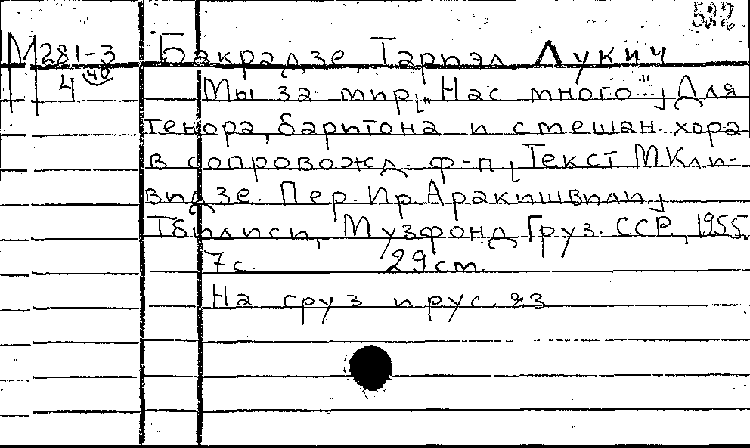 532
М281-3 Бакрадзе, Тариэл Лукич
4 40
Мы за мир ["Нас много"] Для
тенора, баритона и смешан. хора
в сопровожд. ф-п [Текст М Кли-
видзе. Пер. Ир. Аракишвили]
Тбилиси, Музфонд Груз. ССР, 1955
7 с. 29 см.
На груз и рус. яз